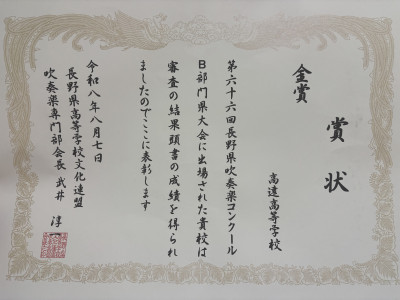 賞状
金賞
高遠高等学校
第六十六回長野県吹奏楽コンクール
B部門県大会に出場された貴校は
審査の結果頭書の成績を得られ
ましたのでここに表彰します
令和八年八月七日
長野県高等学校文化連盟
吹奏楽専門部会長 武井 淳